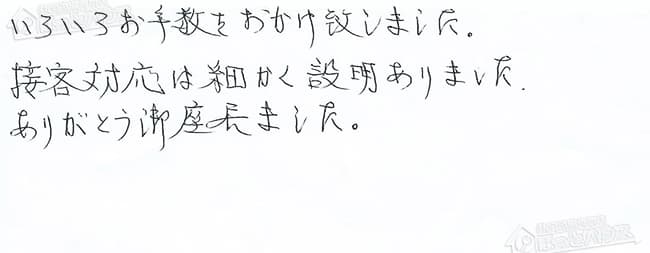 いろいろお手数をおかけ致しました。
接客対応は細かく説明ありました.
ありがとう御座長ました。